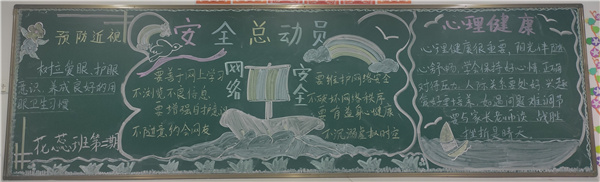 预防近视
树立爱眼、护眼
意识,养成良好的用
眼卫生习惯
花蕊班第二期
安全总动员
网络
安全
要善于网上学习
不浏览不良信息
要增强自护意识
不随意约会网友
要维护网络安全
不破坏网络秩序
要有益身心健康
不沉溺虚拟时空
心理健康
心理健康很重要,阳光伴随
心舒畅,学会保持好心情,正确
对待压力,人际关系要处好,兴趣
爱好要培养,如遇问题难调节
要与家长老师谈,战胜
挫折是晴天